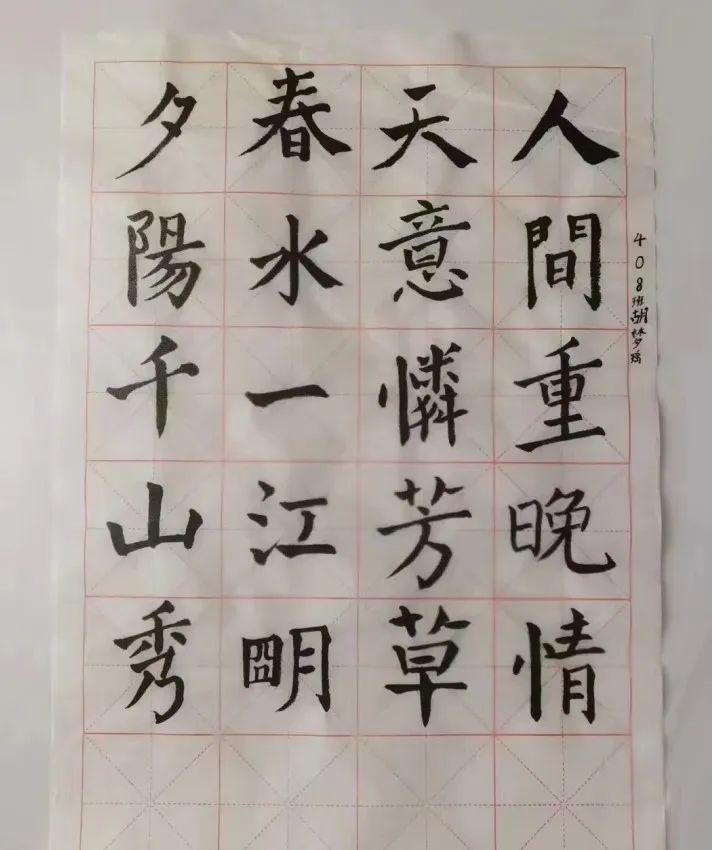 夕陽千山秀
春水一江朙
天意憐芳草
人間重晚情
408班胡梦瑶